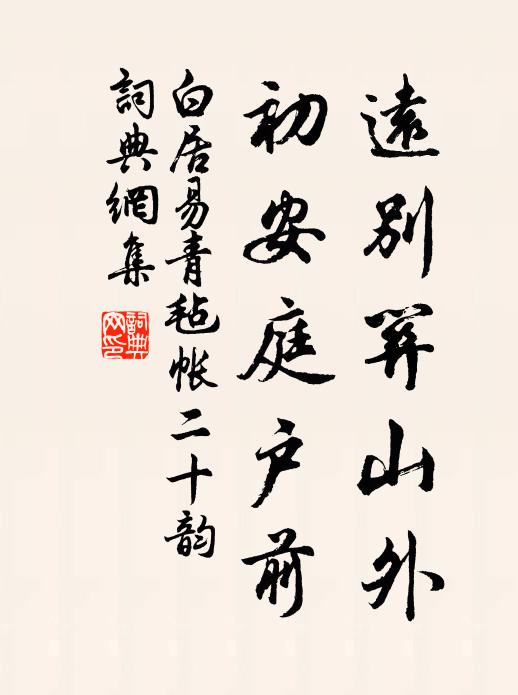 遠別關山外
初安庭户前
白居易青毡帐二十韵
詞典網集
詞典網印